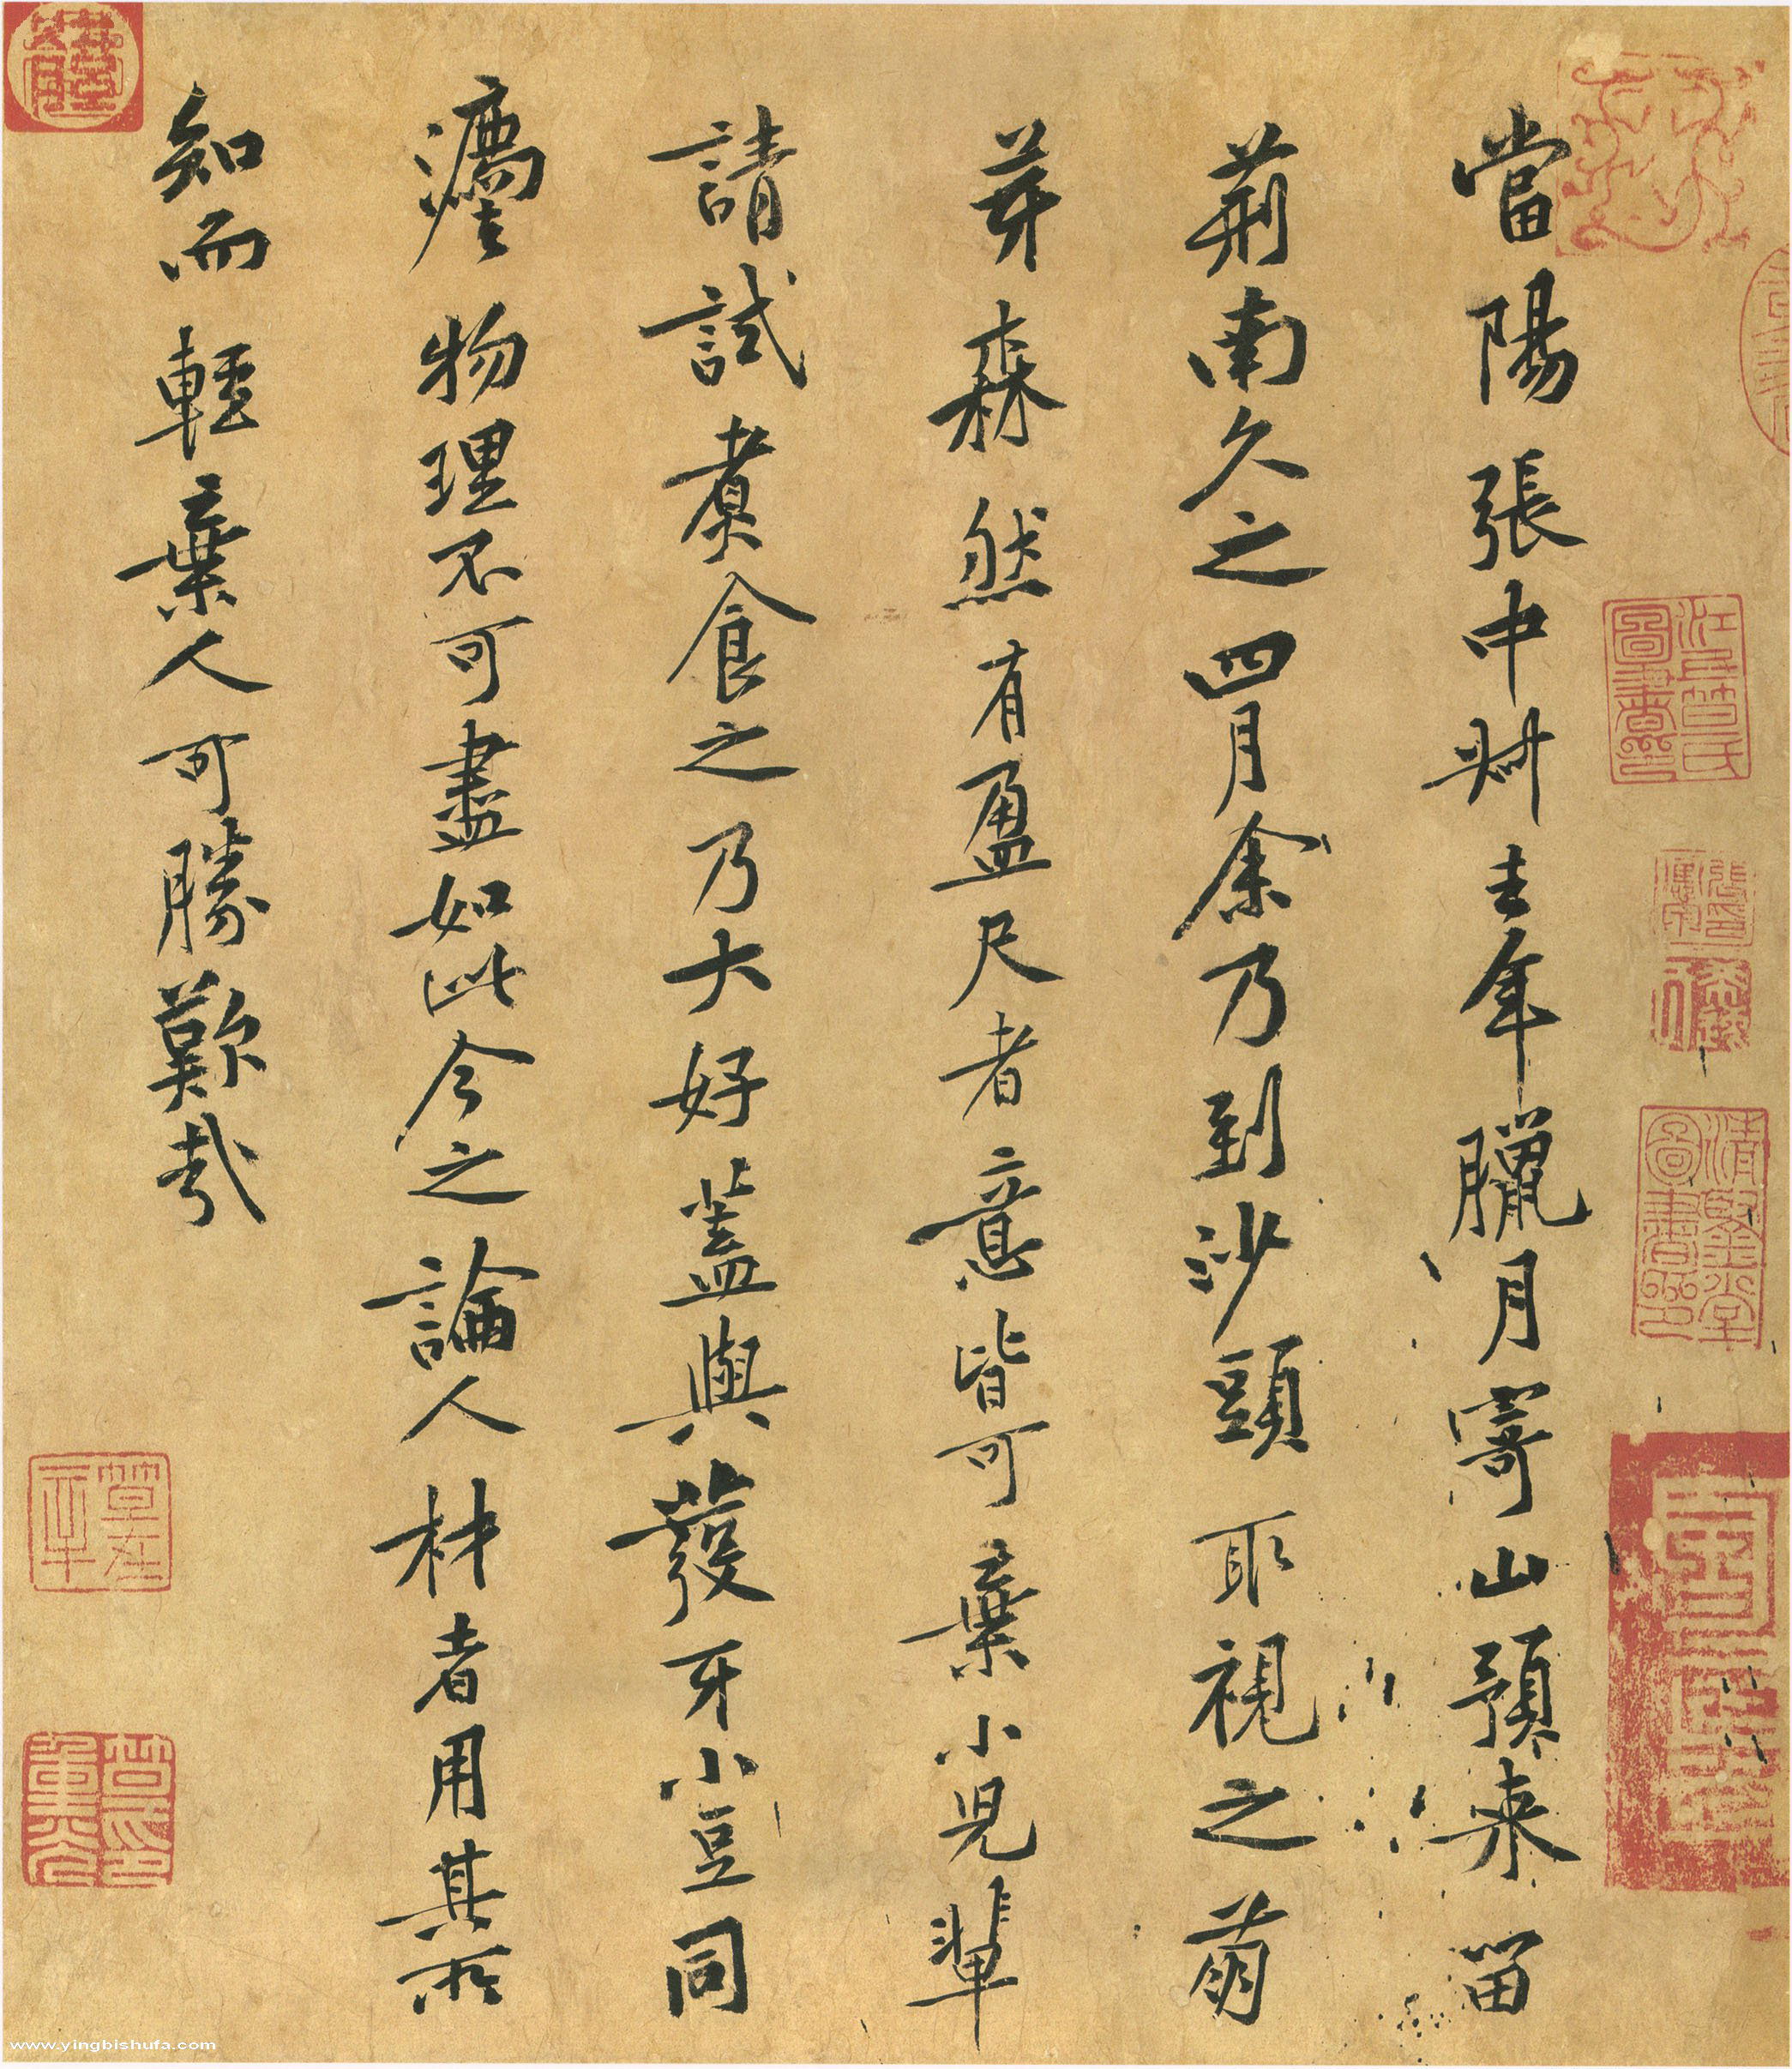 當陽張中叔去年臘月寄山預來留
荊南久之四月余乃到沙頭取視之萌
芽森然有盈尺者意皆可棄小兒輩
請試煮食之乃大好蓋與發牙小豆同
灋物理不可盡如此今之論人材者用其所
知而輕棄人可勝歎哉
江上笪氏圖書印
笪重光印
www.yingbishufa.com